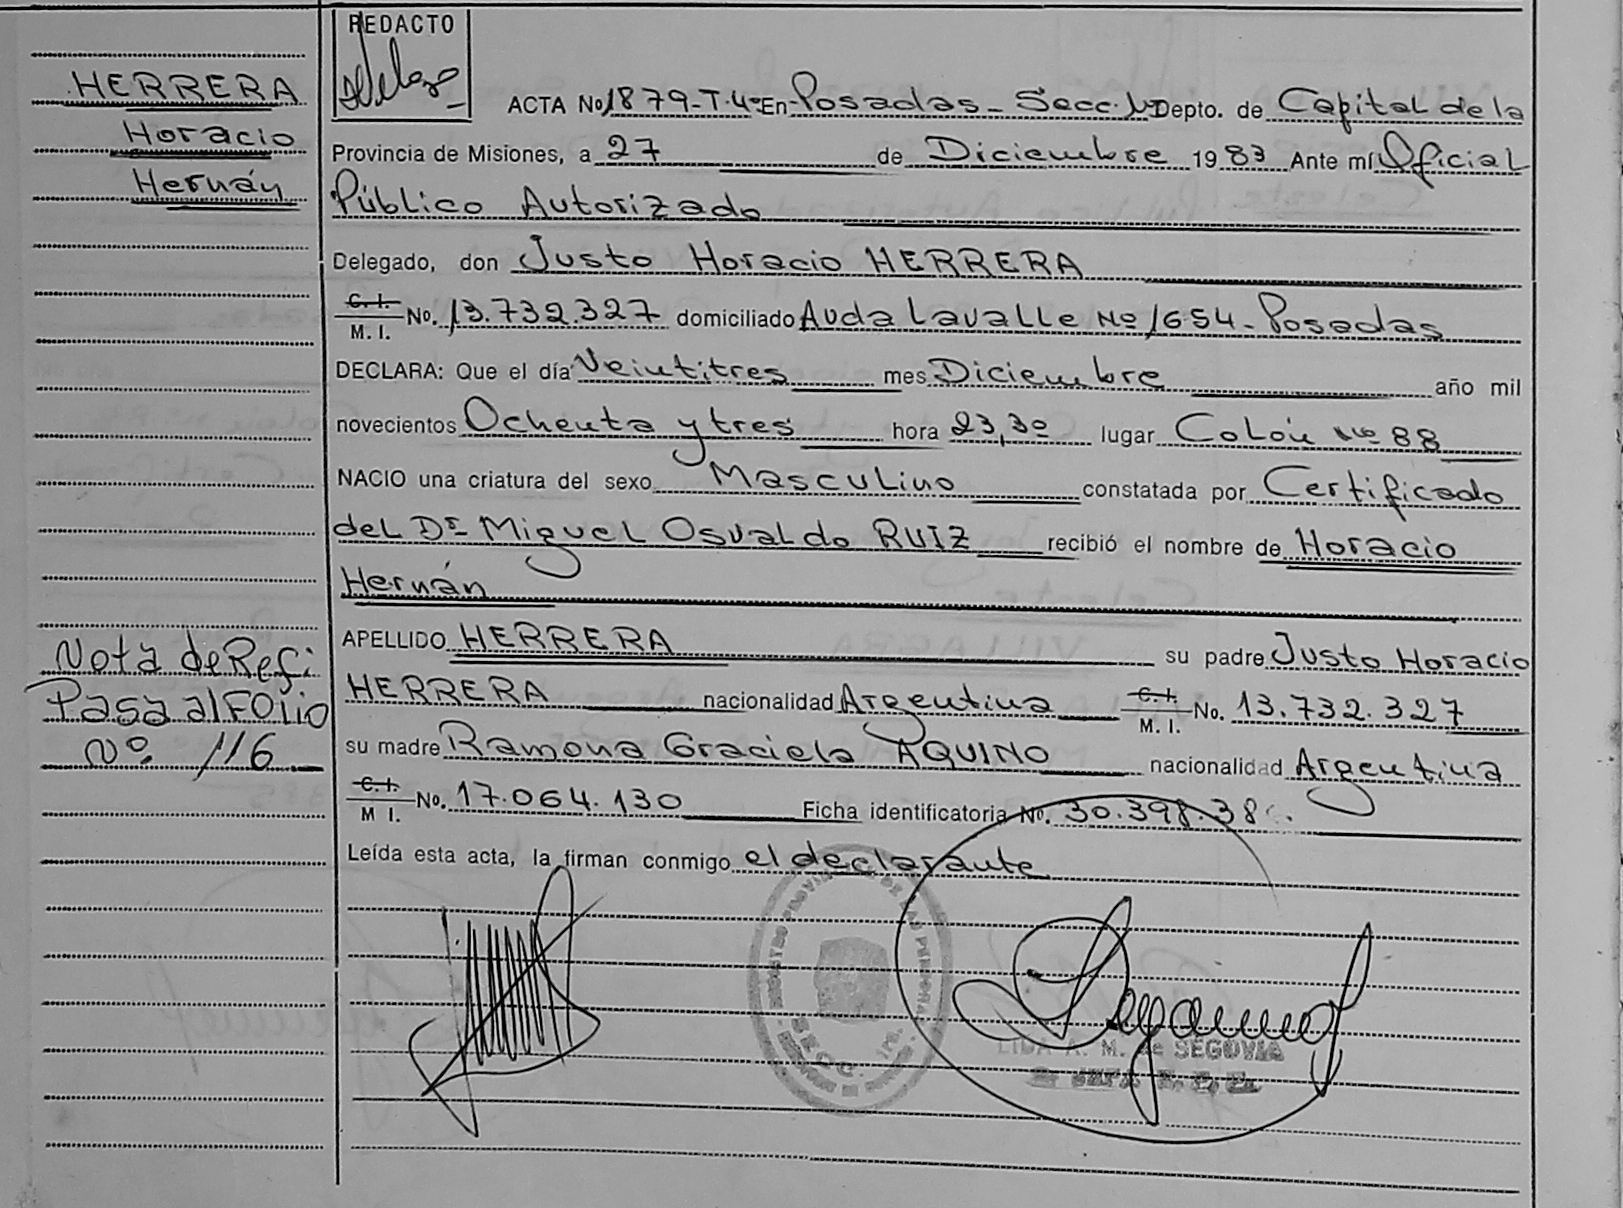 HERRERA
Horacio
Hernán
REDACTO
ACTA No 1879-T.4º En Posadas - Secc. 1ª Depto. de Capital de la
Provincia de Misiones, a 27 de Diciembre 1983 Ante mí Oficial
Público Autorizado
Delegado, don Justo Horacio HERRERA
C. I.
M. I. No. 13.732.327 domiciliado Avda Lavalle Nº 1654 - Posadas
DECLARA: Que el día Veintitres mes Diciembre año mil
novecientos Ochenta y tres hora 23,30 lugar Colón Nº 88
NACIO una criatura del sexo Masculino constatada por Certificado
del Dr Miguel Osvaldo RUIZ recibió el nombre de Horacio
Hernán
APELLIDO HERRERA su padre Justo Horacio
HERRERA nacionalidad Argentina C. I.
M. I. No. 13.732.327
su madre Ramona Graciela AQUINO nacionalidad Argentina
C. I.
M I. No. 17.064.130 Ficha identificatoria No. 30.398.38
Leída esta acta, la firman conmigo el declarante
Nota de Ref:
Pasa al Folio
Nº. 116
REGISTRO PROVINCIAL DE LAS PERSONAS
SECC. 1ra.
A. M. de SEGOVIA